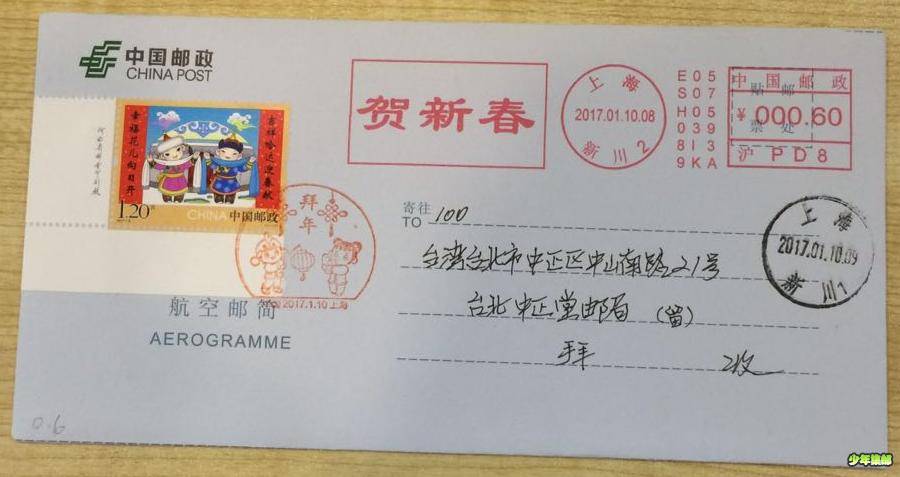 中国邮政
CHINA POST
贺新春
上海
2017.01.10.08
新川2
E05
S07
H05
039
8I3
9KA
中国邮政
贴邮
票处
¥000.60
沪 PD8
幸福花儿向日开
吉祥哈达迎春献
1.20元
CHINA 中国邮政
拜年
2017.1.10上海
寄往
TO
100
台湾台北市中正区中山南路21号
台北中正堂邮局（留）
收
上海
2017.01.10.09
新川1
航空邮简
AEROGRAMME
0.6
少年集邮